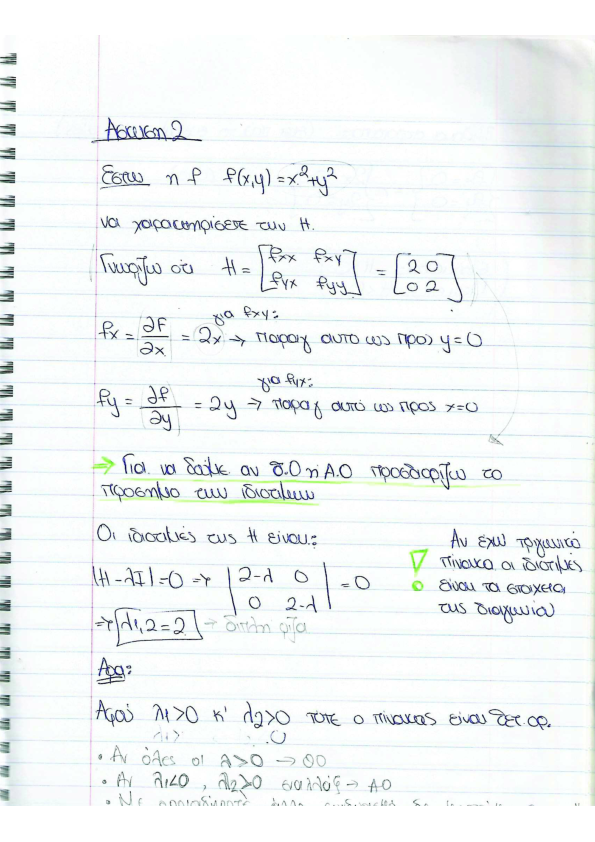 Άσκηση 2
Έστω η f f(x,y)=x²+y²
να χαρακτηρίσετε την H.
Γνωρίζω ότι H = [fxx fxy fyx fyy] = [2 0 0 2]
για fxy:
fx = ∂f/∂x = 2x → παραγ αυτο ως προς y=0
για fyx:
fy = ∂f/∂y = 2y → παραγ αυτό ως προς x=0
→ Για να δούμε αν Θ.Ο ή Α.Ο προσδιορίζω το
πρόσημο των ιδιοτιμών
Οι ιδιοτιμές της H είναι:
|H-λI|=0 → |2-λ 0 0 2-λ| = 0
→ λ1,2=2 → διπλή ρίζα
Αν έχω τριγωνικό
πίνακα οι ιδιοτιμές
είναι τα στοιχεία
της διαγωνίου
!
Άρα:
Αφού λ1>0 κ' λ2>0 τότε ο πίνακας είναι θετ. ορ.
• Αν όλες οι λ>0 → ΘΟ
• Αν λ1<0, λ2>0 εναλλάξ → ΑΟ